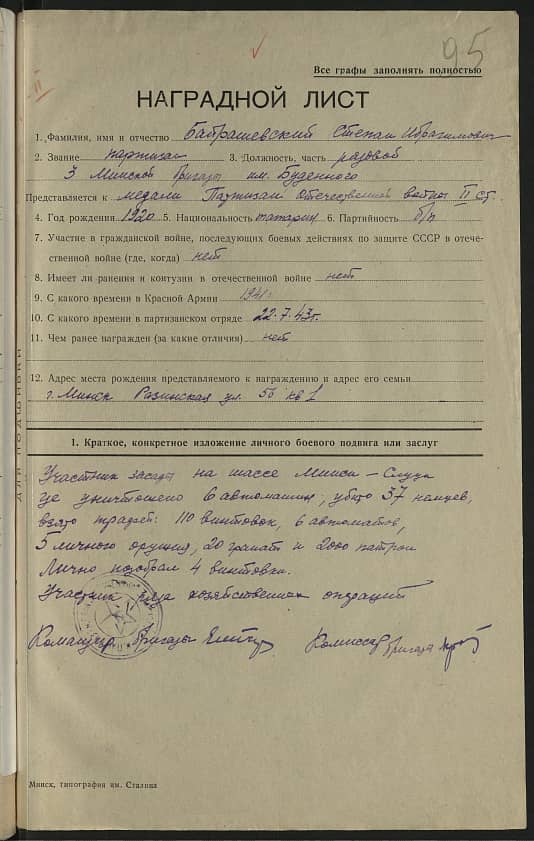 95
Все графы заполнять полностью
НАГРАДНОЙ ЛИСТ
1. Фамилия, имя и отчество Байрашевский Степан Ибрагимович
2. Звание партизан 3. Должность, часть рядовой
3 Минской бригады им. Буденного
Представляется к медали Партизан Отечественной войны II ст.
4. Год рождения 1920 5. Национальность татарин 6. Партийность б/п
7. Участие в гражданской войне, последующих боевых действиях по защите СССР в отече-
ственной войне (где, когда) нет
8. Имеет ли ранения и контузии в отечественной войне нет
9. С какого времени в Красной Армии 1941г.
10. С какого времени в партизанском отряде 22.7.43г.
11. Чем ранее награжден (за какие отличия) нет
12. Адрес места рождения представляемого к награждению и адрес его семьи
г. Минск Разинская ул. 56 кв 1
1. Краткое, конкретное изложение личного боевого подвига или заслуг
Участник засады на шассе Минск – Слуцк
где уничтожено 6 автомашин, убито 37 немцев,
взято трофей: 110 винтовок, 6 автоматов,
5 личного оружия, 20 гранат и 2000 патрон
Лично подобрал 4 винтовки.
Участник ряда хозяйственных операций
Командир бригады Комиссар бригады
Минск, типография им. Сталина
ДЛЯ ПОДШИВКИ